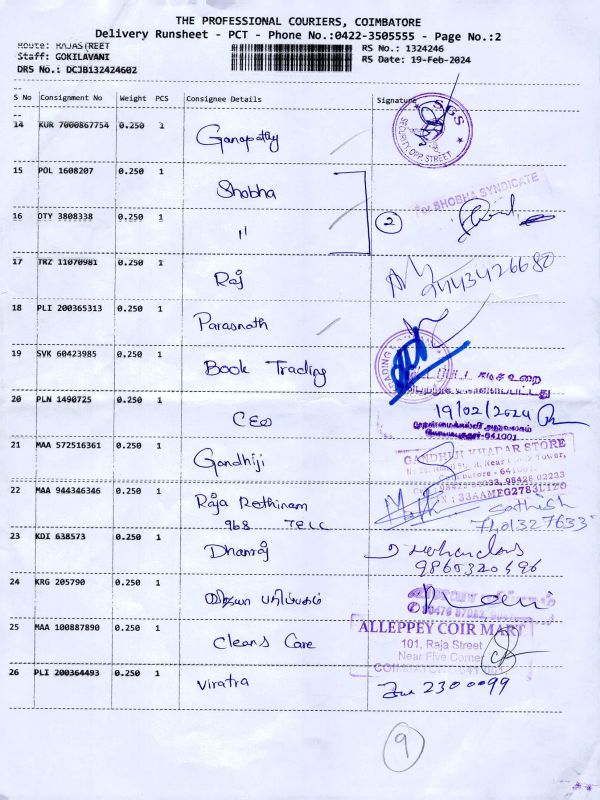 THE PROFESSIONAL COURIERS, COIMBATORE
Delivery Runsheet - PCT - Phone No.:0422-3505555 - Page No.:2
Route: RAJASTREET
Staff: GOKILAVANI
DRS No.: DCJB132424602
RS No.: 1324246
RS Date: 19-Feb-2024
S No Consignment No Weight PCS Consignee Details Signature
14 KUR 7000867754 0.250 1 Ganapathy
SGS
SECURITY OPP. STREET
15 POL 1608207 0.250 1 Shobha
For SHOBHA SYNDICATE
16 OTY 3808338 0.250 1 〃 2
17 TRZ 11070981 0.250 1 Raj
9443426680
18 PLI 200365313 0.250 1 Parasnath
19 SVK 60423985 0.250 1 Book Trading
உறை
20 PLN 1490725 0.250 1 CEO 19/02/2024
641001
21 MAA 572516361 0.250 1 Gandhiji
GANDHIJI KHADAR STORE
Tower,
Coimbatore - 641001.
98428 02233
33AAMFG2783L1ZO
22 MAA 944346346 0.250 1 Raja Rethinam Sathish
968 TELC 7401327633
23 KDI 638573 0.250 1 Dhanraj
9865320496
24 KRG 205790 0.250 1 விஜயா பதிப்பகம்
25 MAA 100887890 0.250 1 Cleans Care
ALLEPPEY COIR MART
101, Raja Street
Near Five Corner
26 PLI 200364493 0.250 1 Viratra 2300099
9